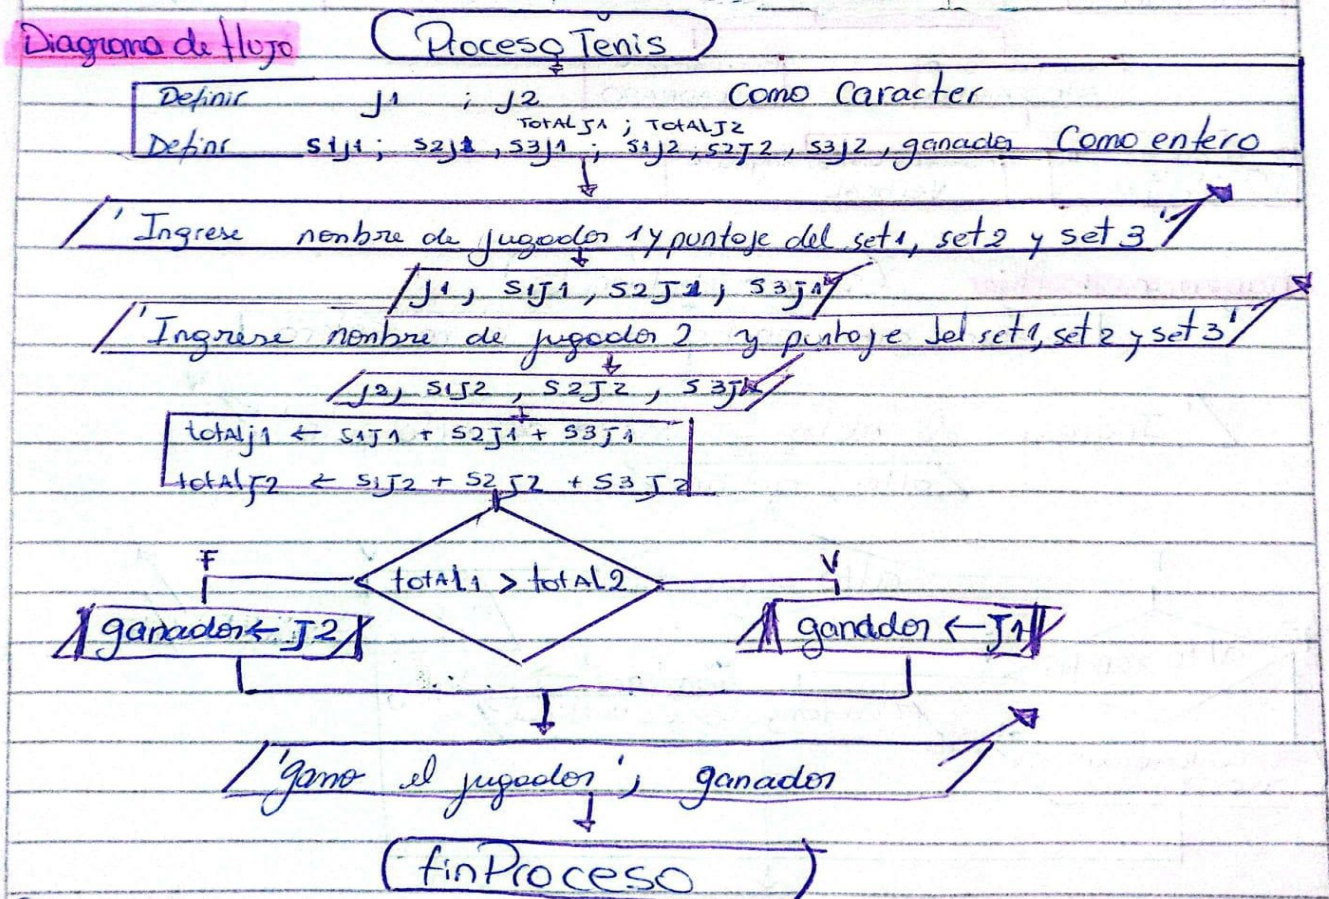 Diagrama de flujo
Proceso Tenis
Definir J1 ; J2 Como Caracter
TotAL J1 ; TotALJ2
Definir S1J1; S2J1, S3J1 ; S1J2, S2J2, S3J2, ganador Como entero
'Ingrese nonbre de jugador 1 y puntaje del set1, set2 y set3'
J1, S1J1, S2J1, S3J1
'Ingrese nonbre de jugador 2 y puntaje del set1, set2 y set3'
J2, S1J2, S2J2, S3J2
totALj1 ← S1J1 + S2J1 + S3J1
totALJ2 ← S1J2 + S2J2 + S3J2
F
V
totAL1 > totAL2
ganador ← J2
ganador ← J1
'gano el jugador', ganador
finProceso